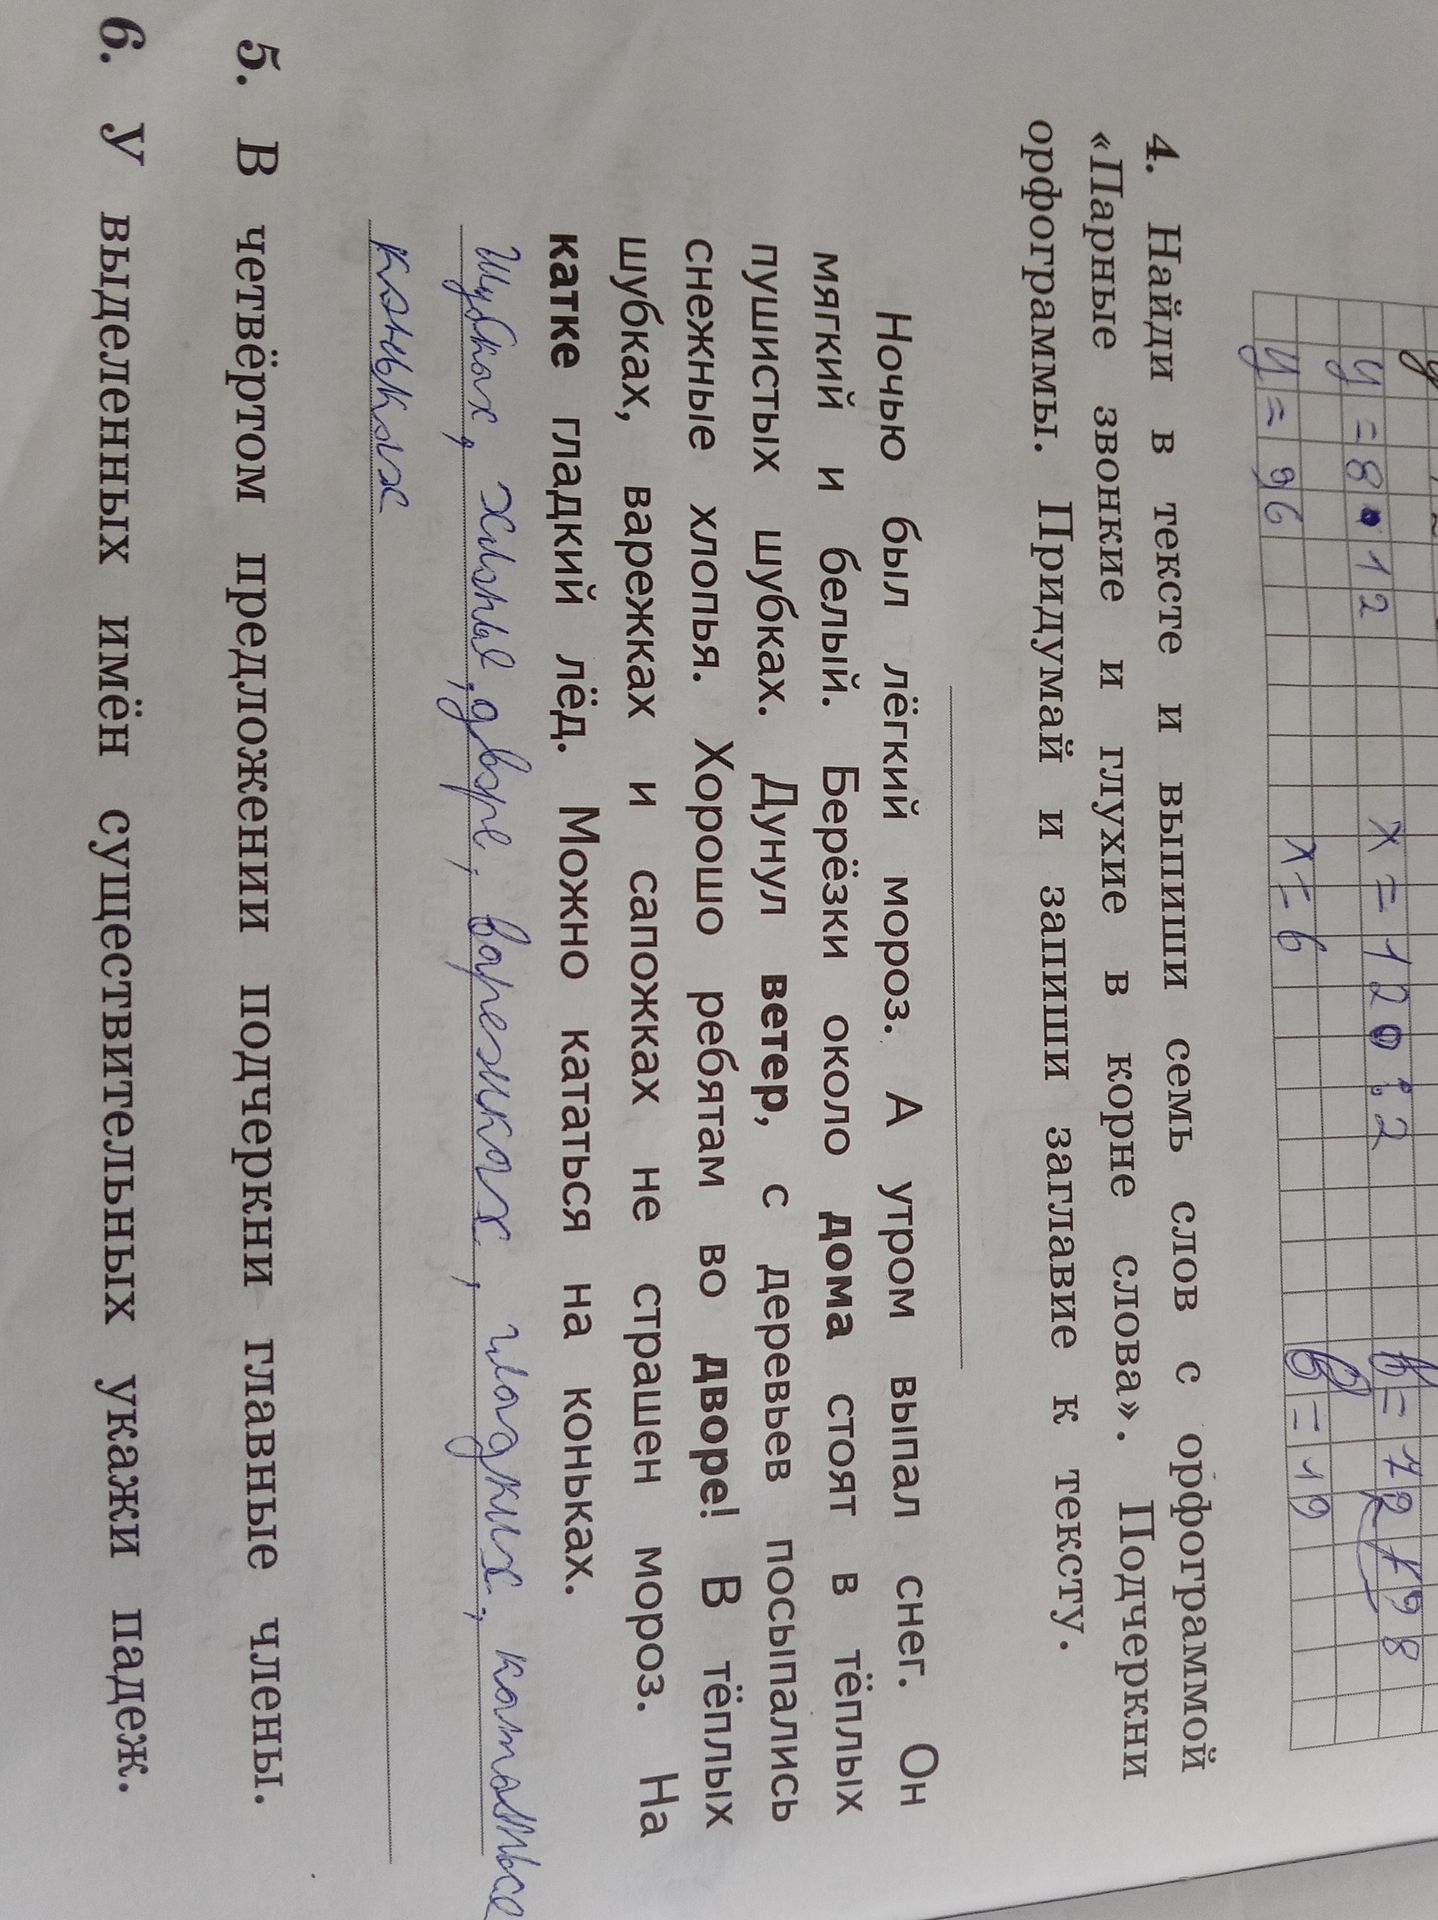 y = 8 · 12
x = 120 : 2
y = 96
x = 6
в = 19
4. Найди в тексте и выпиши семь слов с орфограммой
«Парные звонкие и глухие в корне слова». Подчеркни
орфограммы. Придумай и запиши заглавие к тексту.
Ночью был лёгкий мороз. А утром выпал снег. Он
мягкий и белый. Берёзки около дома стоят в тёплых
пушистых шубках. Дунул ветер, с деревьев посыпались
снежные хлопья. Хорошо ребятам во дворе! В тёплых
шубках, варежках и сапожках не страшен мороз. На
катке гладкий лёд. Можно кататься на коньках.
Шубках, дворе, варежках,
коньках
5. В четвёртом предложении подчеркни главные члены.
6. У выделенных имён существительных укажи падеж.